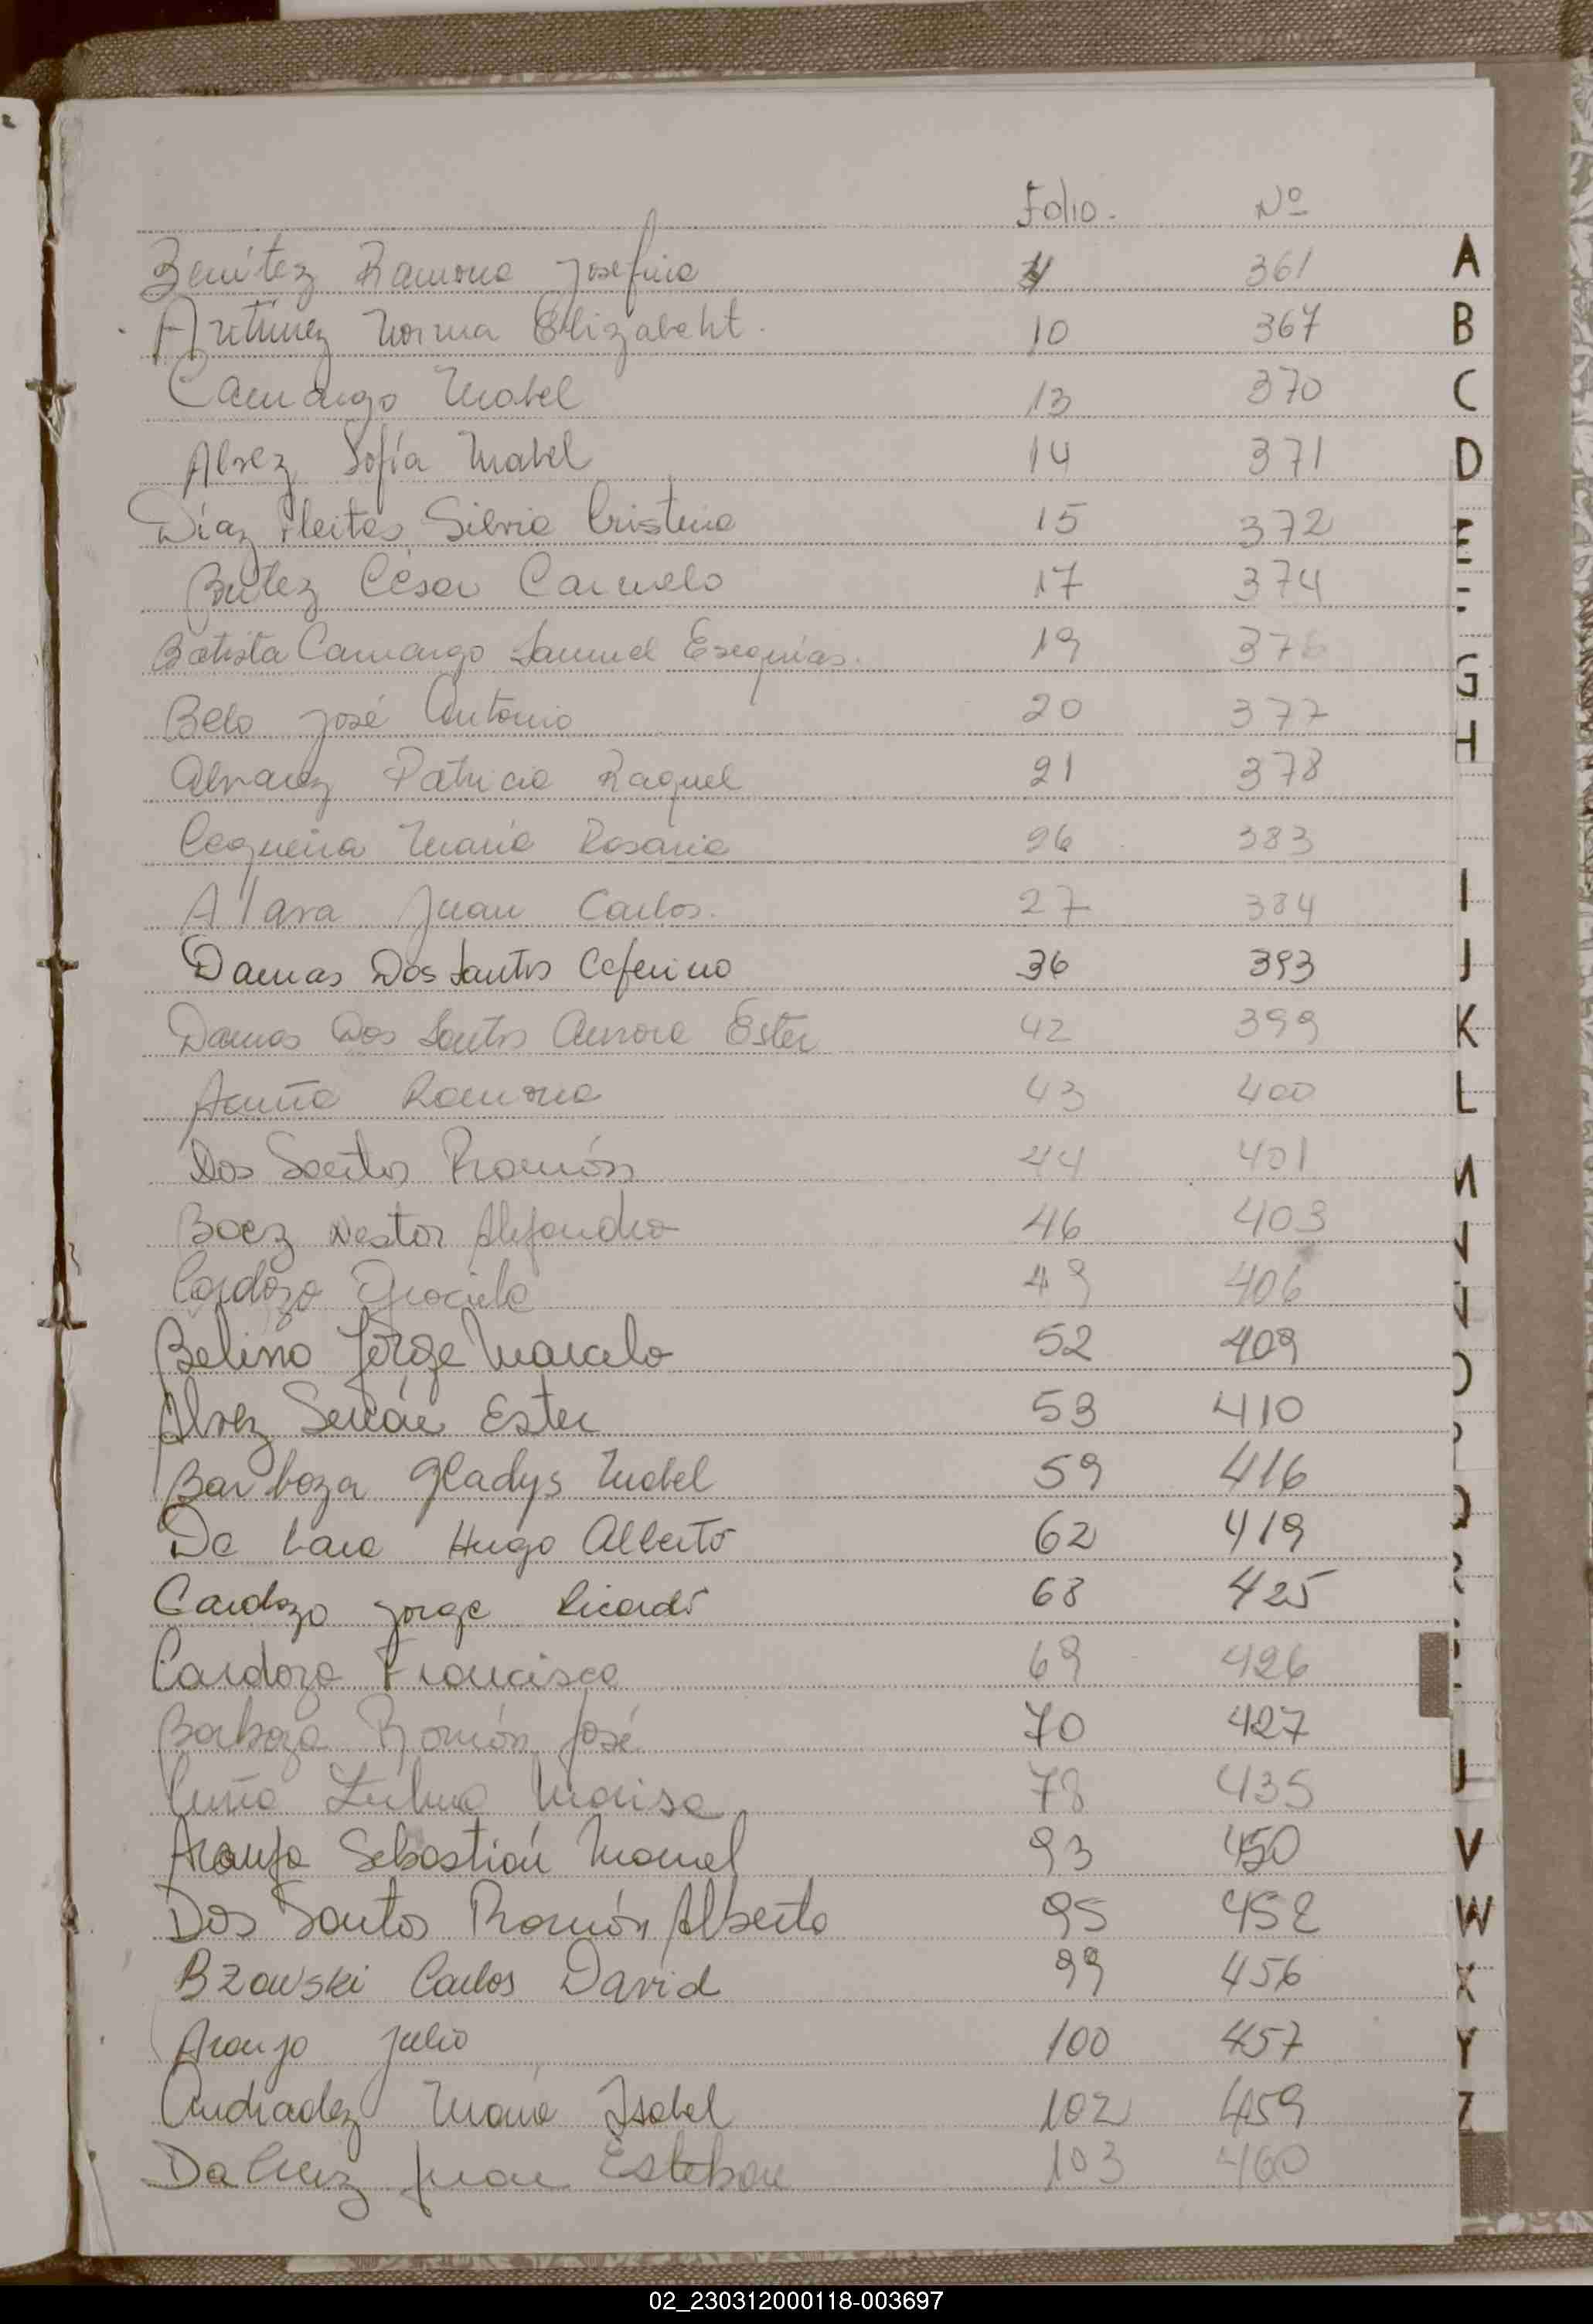 Folio. Nº
Benítez Ramona Josefina 4 361
A
Artimez Norma Elizabeht. 10 367
B
Camargo Mabel 13 370
C
Alvez Sofía Mabel 14 371
D
Díaz Fleitas Silvia Cristina 15 372
E
Britez César Carmelo 17 374
Batista Camargo Samuel Esequías. 19 376
G
Belo José Antonio 20 377
H
Alvarez Patricia Raquel 21 378
Cequeira María Rosaria 26 383
Alava Juan Carlos. 27 384
I
Damas Dos Santos Ceferino 36 393
J
Damas Dos Santos Aurora Ester 42 399
K
Acuña Ramona 43 400
L
Dos Santos Ramón 44 401
Baez Nestor Alejandro 46 403
Cardozo Graciela 49 406
Belino Jorge Marcelo 52 409
Alvez Ester 53 410
Barboza Gladys Mabel 59 416
De Lara Hugo Alberto 62 419
Cardozo Jorge Ricardo 68 425
Cardozo Francisca 69 426
Barboza Ramón José 70 427
Marisa 78 435
Araujo Sebastián Manuel 93 450
V
Dos Santos Ramón Alberto 95 452
W
Bzowski Carlos David 99 456
X
Araujo Julio 100 457
Y
Andradez María Isabel 102 459
Z
Da Cruz Juan Esteban 103 460
02_230312000118-003697